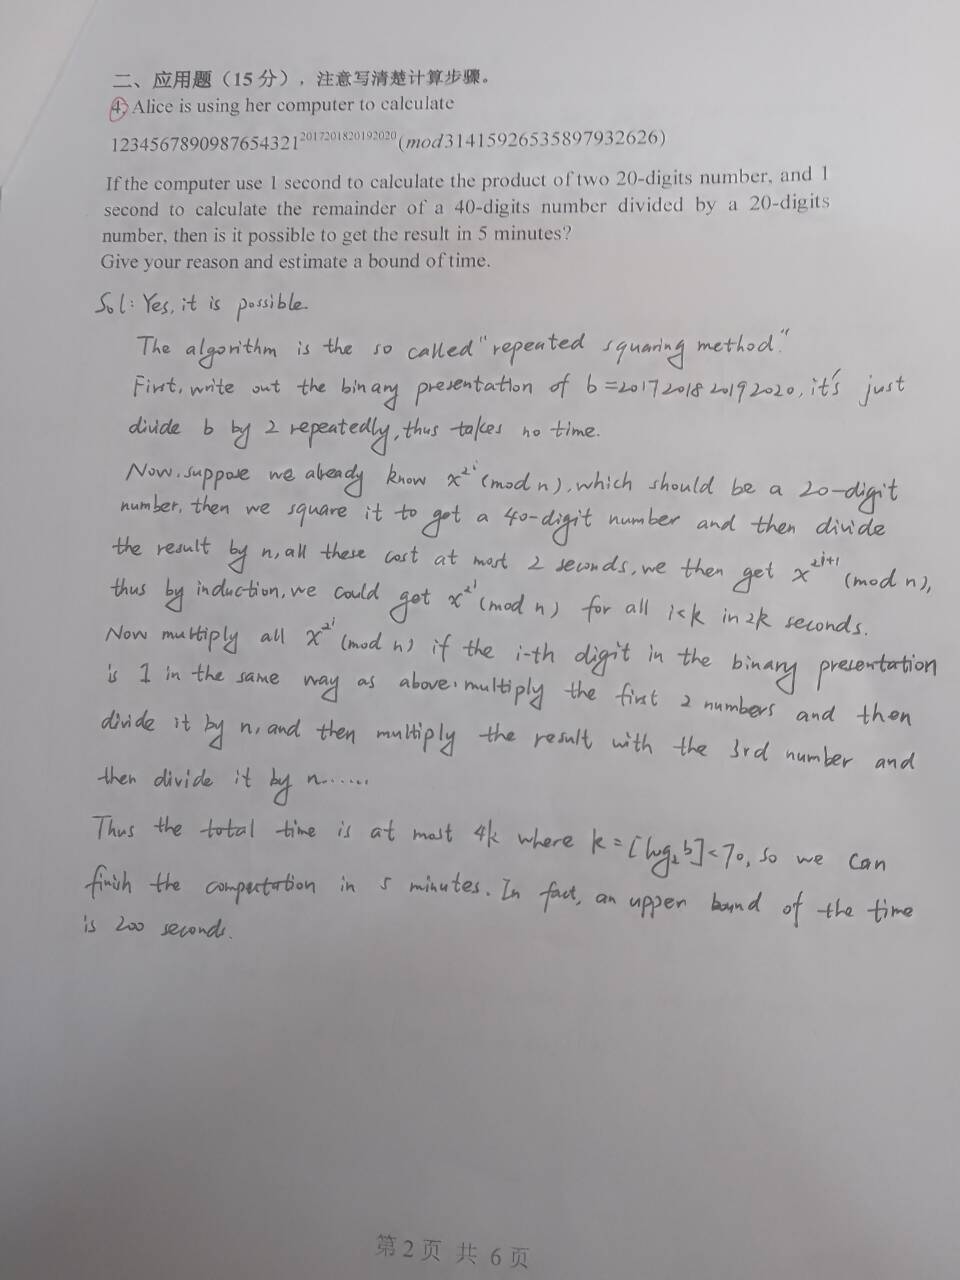 二、应用题（15 分），注意写清楚计算步骤。
4, Alice is using her computer to calculate
1234567890987654321^2017201820192020 (mod31415926535897932626)
If the computer use 1 second to calculate the product of two 20-digits number, and 1
second to calculate the remainder of a 40-digits number divided by a 20-digits
number, then is it possible to get the result in 5 minutes?
Give your reason and estimate a bound of time.
Sol: Yes, it is possible.
The algorithm is the so called "repeated squaring method."
First, write out the binary presentation of b=2017201820192020, it's just
divide b by 2 repeatedly, thus takes no time.
Now, suppose we already know x^2^i (mod n), which should be a 20-digit
number, then we square it to get a 40-digit number and then divide
the result by n, all these cost at most 2 seconds, we then get x^2^i+1 (mod n),
thus by induction, we could get x^2^i (mod n) for all i<k in 2k seconds.
Now multiply all x^2^i (mod n) if the i-th digit in the binary presentation
is 1 in the same way as above. multiply the first 2 numbers and then
divide it by n, and then multiply the result with the 3rd number and
then divide it by n......
Thus the total time is at most 4k where k=[log₂b]<70, so we can
finish the computation in 5 minutes. In fact, an upper bound of the time
is 200 seconds.
第 2 页 共 6 页